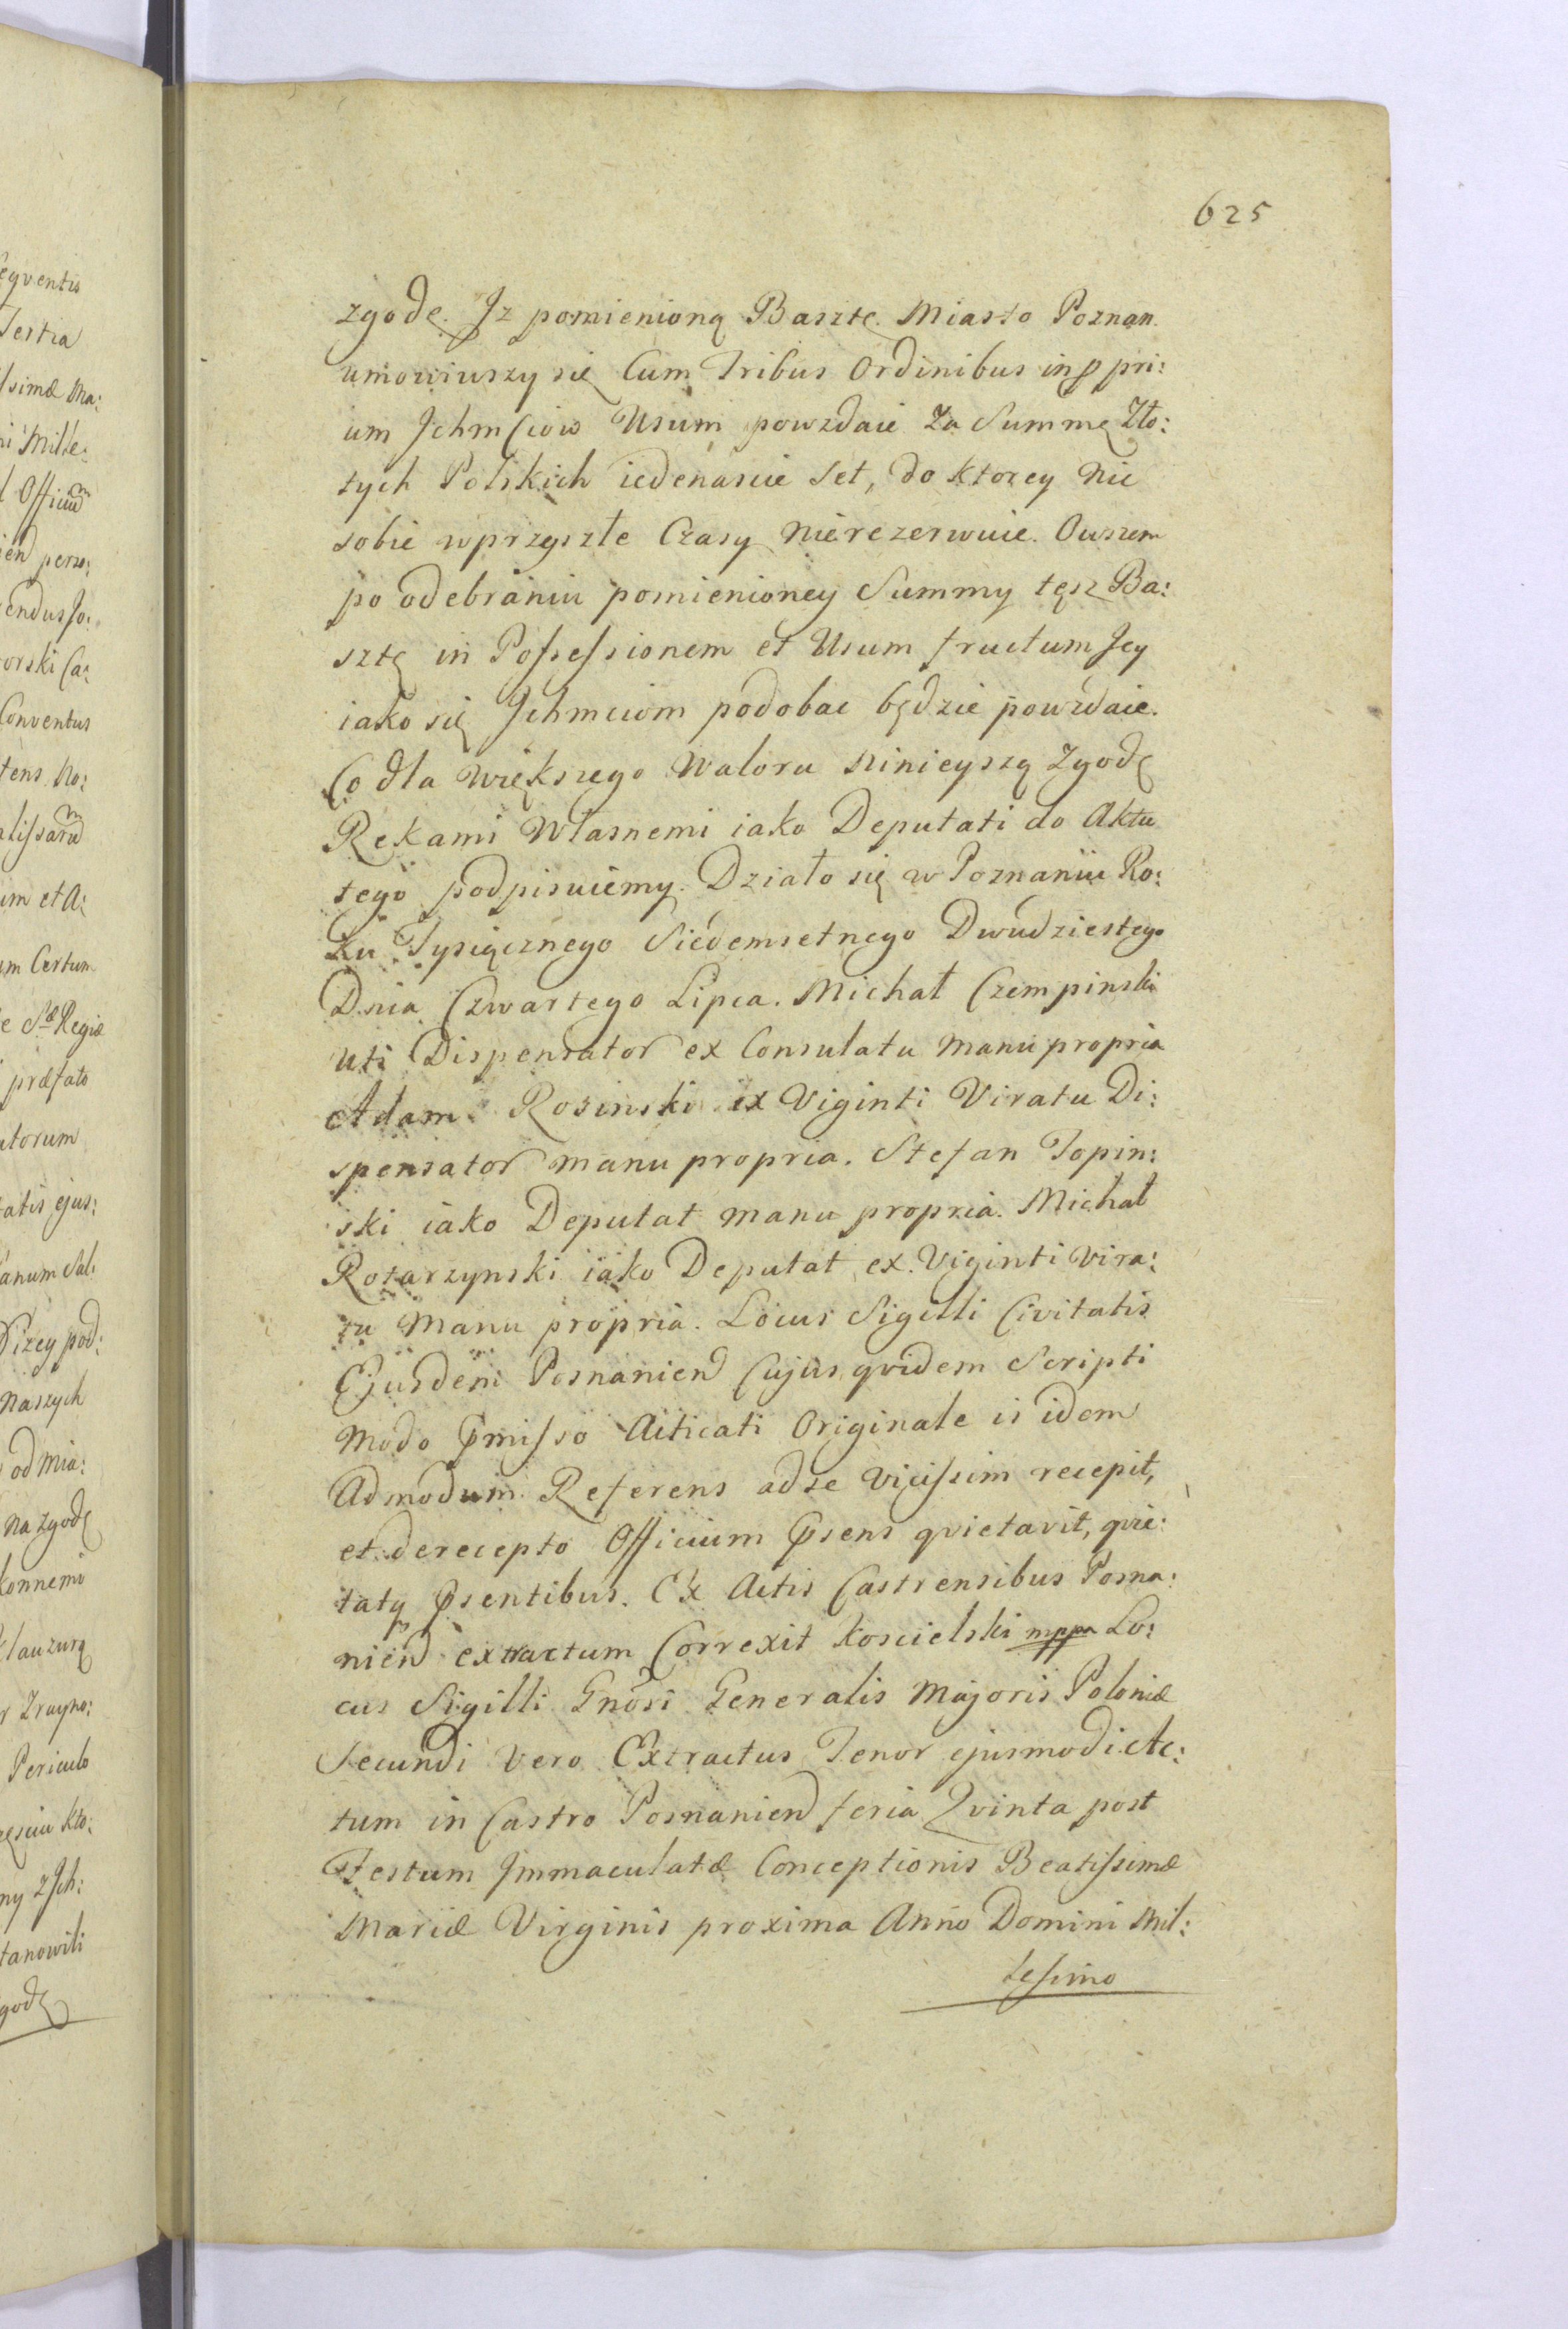 625
zgodę. Jz pomienioną Basztę Miasto Poznan.
umowiwszy się Cum Tribus Ordinibus in ꝓpri:
um Jchm Ciow Usum powzdaie Za Summę Zło:
tych Polskich iedenascie Set, do ktorey nic
sobie wprzyszłe Czasy nierezerwuie. Owszem
po odebraniu pomienioney Summy tęsz Ba:
sztę in Possessionem et Usum fructum Jey
iako się Jchmciom podobac będzie powzdaie.
Co dla większego Waloru Ninieyszą Zgodę
Rekami Własnemi iako Deputati do Aktu
tego podpisuiemy. Działo się w Poznaniu Ro:
ku Tysiącznego Siedemsetnego Dwudziestego
Dnia Czwartego Lipca. Michał Czempinski
uti Dispensator ex Consulatu manu propria
Adam Rosinski ex Viginti Viratu Di:
spensator manu propria. Stefan Topin:
ski iako Deputat manu propria. Michał
Rotarzynski iako Deputat ex. Viginti Vira:
tu Manu propria. Locus Sigilli Civitatis
Ejusdem Posnanien Cujus qvidem Scripti
modo p̄misso Acticati Originale is idem
Admodum Referens ad se vicissim recepit,
et de recepto Officium p̄sens qvietavit, qvie:
tatq p̄sentibus. Ex Actis Castrensibus Posna:
nien extractum Correxit Koscielski mppa Lo:
cus Sigilli Gn̄osi Generalis Majoris Poloniæ
Secundi vero Extractus Tenor ejusmodi Ac:
tum in Castro Posnanien feria Qvinta post
Festum Jmmaculatæ Conceptionis Beatissimæ
Mariæ Virginis proxima Anno Domini Mil:
lesimo
eqventis
Tertia
ssimæ Ma:
ni Mille:
l Officiu
ien perso:
orski Ca:
Conventus
tens No:
um et A:
um Certum
e S Regiæ
præfato
utorum
tatis ejus:
anum Sal:
Nizey pod:
Naszych
od Mia:
na zgodę
konnemi
klauzurą
Periculo
ny z Jch:
tanowili
godę